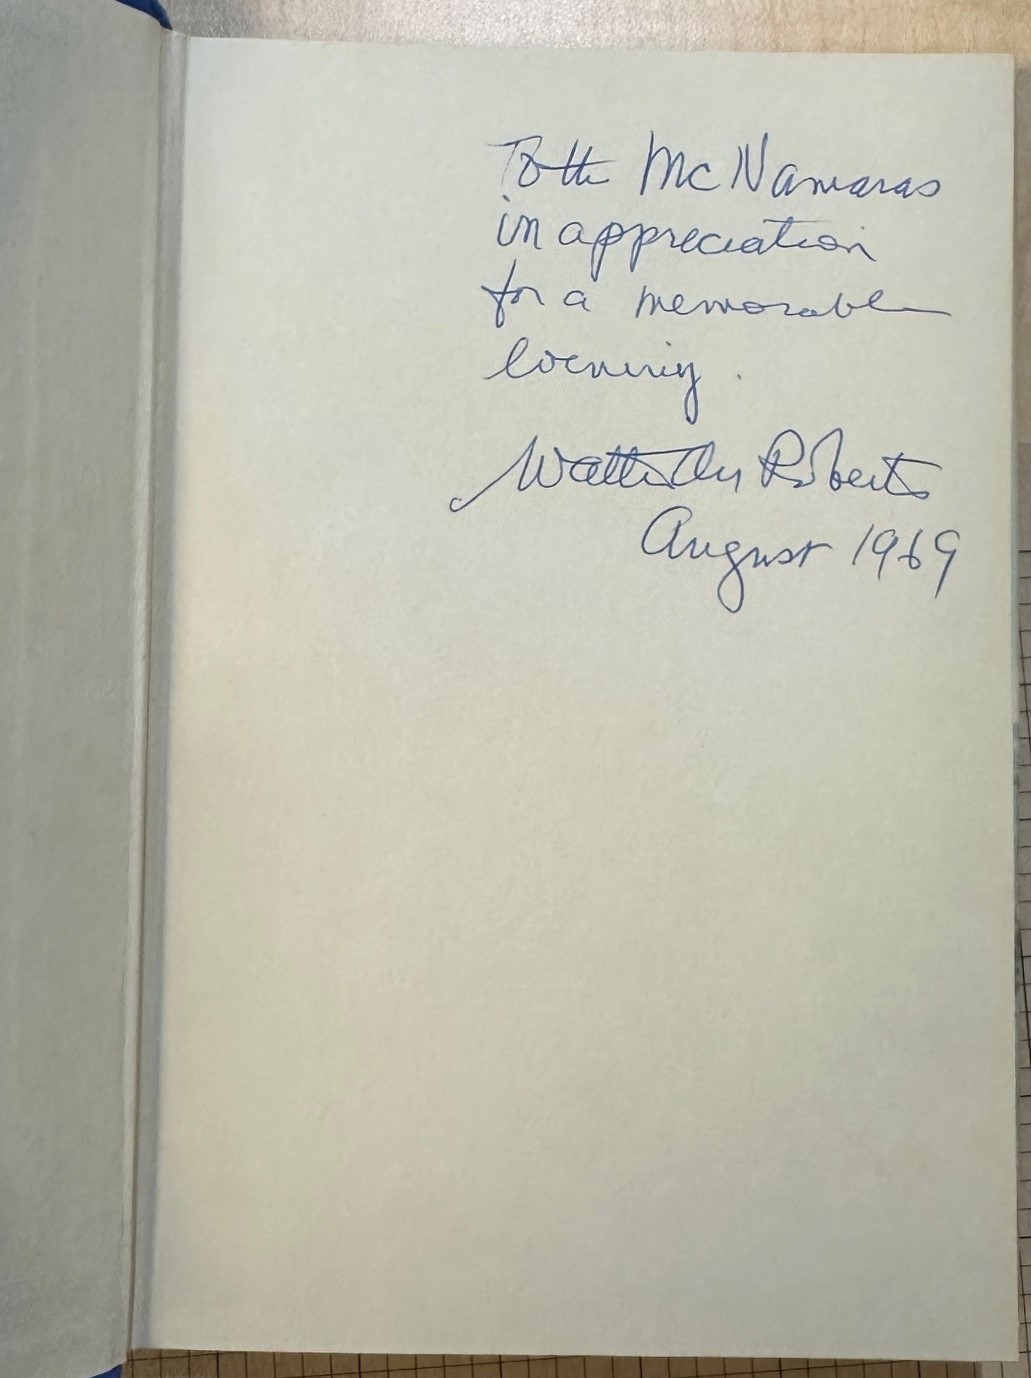 To the McNamaras
in appreciation
for a memorable
evening.
Walter Orr Roberts
August 1969